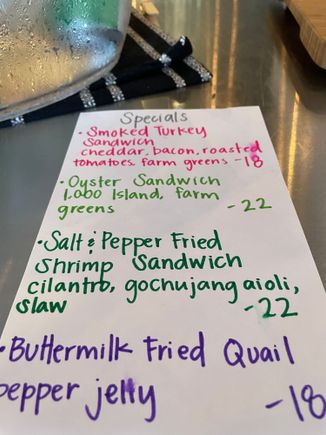 Specials
• Smoked Turkey
Sandwich
cheddar, bacon, roasted
tomatoes, farm greens -18
• Oyster Sandwich
1,000 Island, farm
greens -22
• Salt & Pepper Fried
Shrimp Sandwich
cilantro, gochujang aioli,
slaw -22
• Buttermilk Fried Quail
pepper jelly -18